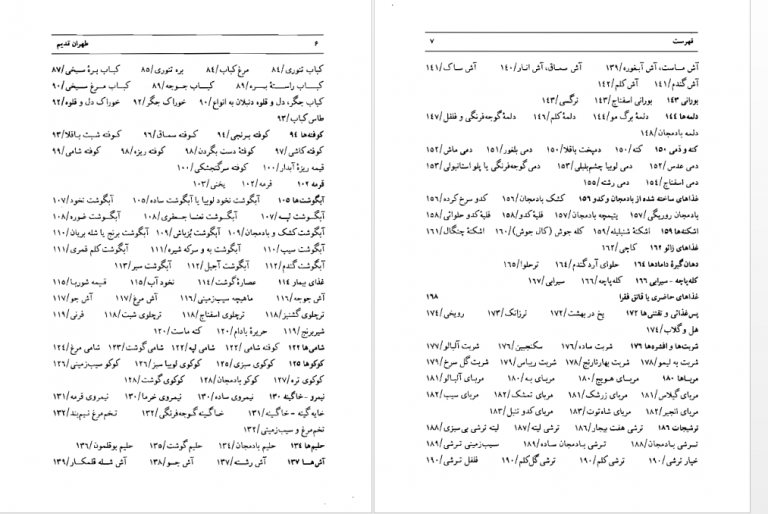 ۶ طهران قدیم
کباب تنوری/۸۴ مرغ کباب/۸۴ بره تنوری/۸۵ کباب برهٔ مسیخی/۸۷
کباب راستهٔ بره/۸۹ کباب جوجه/۸۹ کباب مرغ مسیخی/۹۰
کباب جگر، دل و قلوه دنبلان به انواع/۹۰ خوراک جگر/۹۲ خوراک دل و قلوه/۹۲
طاس کباب/۹۳
کوفته‌ها ۹۴ کوفته برنجی/۹۴ کوفته سماق/۹۶ کوفته شبت باقلا/۹۳
کوفته کاشی/۹۷ کوفتهٔ دست بگردن/۹۸ کوفته ریزه/۹۸ کوفته شامی/۹۹
قیمه ریزهٔ آبدار/۱۰۰ کوفته سرگنجشکی/۱۰۰
قرمه ۱۰۲ قرمه/۱۰۲ یخنی/۱۰۳
آبگوشت‌ها ۱۰۵ آبگوشت نخود لوبیا یا آبگوشت ساده/۱۰۵ آبگوشت نخود/۱۰۷
آبگوشت لپه/۱۰۷ آبگوشت نعنا جعفری/۱۰۸ آبگوشت غوره/۱۰۸
آبگوشت کشک و بادمجان/۱۰۹ آبگوشت بُزباش/۱۰۹ آبگوشت برنج یا شله بریان/۱۱۰
آبگوشت سیب/۱۱۰ آبگوشت به و سرکه شیره/۱۱۱ آبگوشت کلم قمری/۱۱۱
آبگوشت گندم/۱۱۲ آبگوشت آجیل/۱۱۲ آبگوشت سبز/۱۱۳
غذای بیمار ۱۱۴ عصارهٔ گوشت/۱۱۴ نخود آب/۱۱۵ قیمه شوربا/۱۱۵
آش جوجه/۱۱۶ ماهیچه سیب‌زمینی/۱۱۶ آش مرغ/۱۱۷ آش جو/۱۱۷
ترچلوی گشنیز/۱۱۸ ترچلوی اسفناج/۱۱۸ ترچلوی شبت/۱۱۸ فرنی/۱۱۹
شیربرنج/۱۱۹ حریرهٔ بادام/۱۲۰ کته ماست/۱۲۰
شامی‌ها ۱۲۲ کوفته شامی/۱۲۲ شامی لپه/۱۲۲ شامی گوشت/۱۲۳ شامی مرغ/۱۲۴
کوکوها ۱۲۵ کوکوی سبزی/۱۲۵ کوکوی لوبیا سبز/۱۲۶ کوکو سیب‌زمینی/۱۲۶
کوکوی تره/۱۲۷ کوکو بادمجان/۱۲۸ کوکوی گوشت/۱۲۸
نیمرو - خاگینه ۱۳۰ نیمروی ساده/۱۳۰ نیمروی خرما/۱۳۰ نیمروی قرمه/۱۳۱
خایه گینه - خاگینه/۱۳۱ خاگینه گوجه‌فرنگی/۱۳۲ تخم‌مرغ نیم‌بند/۱۳۲
تخم‌مرغ و سیب‌زمینی/۱۳۲
حلیم‌ها ۱۳۴ حلیم بادمجان/۱۳۴ حلیم گوشت/۱۳۵ حلیم بوقلمون/۱۳۶
آش‌ها ۱۳۷ آش رشته/۱۳۷ آش جو/۱۳۸ آش شله قلمکار/۱۳۹
فهرست ۷
آش ماست، آش آبغوره/۱۳۹ آش سماق، آش انار/۱۴۰ آش ساک/۱۴۱
آش گندم/۱۴۱ آش کلم/۱۴۲
بورانی ۱۴۳ بورانی اسفناج/۱۴۳ نرگسی/۱۴۳
دلمه‌ها ۱۴۴ دلمهٔ برگ مو/۱۴۴ دلمهٔ کلم/۱۴۶ دلمهٔ گوجه‌فرنگی و فلفل/۱۴۷
دلمه بادمجان/۱۴۸
کته و دمی ۱۵۰ کته/۱۵۰ دمپخت باقلا/۱۵۰ دمی بلغور/۱۵۱ دمی ماش/۱۵۲
دمی عدس/۱۵۲ دمی لوبیا چشم‌بلبلی/۱۵۳ دمی گوجه‌فرنگی یا پلو استانبولی/۱۵۳
دمی اسفناج/۱۵۴ دمی رشته/۱۵۵
غذاهای ساخته شده از بادمجان و کدو ۱۵۶ کشک بادمجان/۱۵۶ کدو سرخ کرده/۱۵۶
بادمجان رو‌ریگی/۱۵۷ یتیمچه بادمجان/۱۵۷ قلیه کدو/۱۵۸ قلیهٔ کدو حلوائی/۱۵۸
اشکنه‌ها ۱۵۹ اشکنهٔ شنبلیله/۱۵۹ کله جوش (کال جوش)/۱۶۰ اشکنهٔ چنگال/۱۶۱
غذاهای زائو ۱۶۲ کاچی/۱۶۲
دهان‌گیرهٔ دامادها ۱۶۴ حلوای آرد گندم/۱۶۴ ترحلوا/۱۶۵
کله‌پاچه - سیرابی ۱۶۶ کله‌پاچه/۱۶۶ سیرابی/۱۶۷
غذاهای حاضری یا قاتق فقرا ۱۶۸
پس‌غذائی و تفننی‌ها ۱۷۲ یخ در بهشت/۱۷۲ ترزانک/۱۷۳ رویخی/۱۷۴
هل و گلاب/۱۷۴
شربت‌ها و افشره‌ها ۱۷۶ شربت ساده/۱۷۶ سکنجبین/۱۷۶ شربت آلبالو/۱۷۷
شربت به لیمو/۱۷۸ شربت بهارنارنج/۱۷۸ شربت ریباس/۱۷۹ شربت گل سرخ/۱۷۹
مرباها ۱۸۰ مربای هویج/۱۸۰ مربای به/۱۸۰ مربای آلبالو/۱۸۱
مربای گیلاس/۱۸۱ مربای زرشک/۱۸۱ مربای تمشک/۱۸۲ مربای سیب/۱۸۲
مربای انجیر/۱۸۲ مربای شاه‌توت/۱۸۳ مربای کدو تنبل/۱۸۳
ترشیجات ۱۸۶ ترشی هفت بیجار/۱۸۶ ترشی لیته/۱۸۷ لیته ترشی بی‌سبزی/۱۸۸
ترشی بادمجان/۱۸۸ ترشی بادمجان ساده/۱۸۹ سیب‌زمینی ترشی/۱۸۹
خیار ترشی/۱۹۰ ترشی کلم/۱۹۰ ترشی گل‌کلم/۱۹۰ فلفل ترشی/۱۹۰